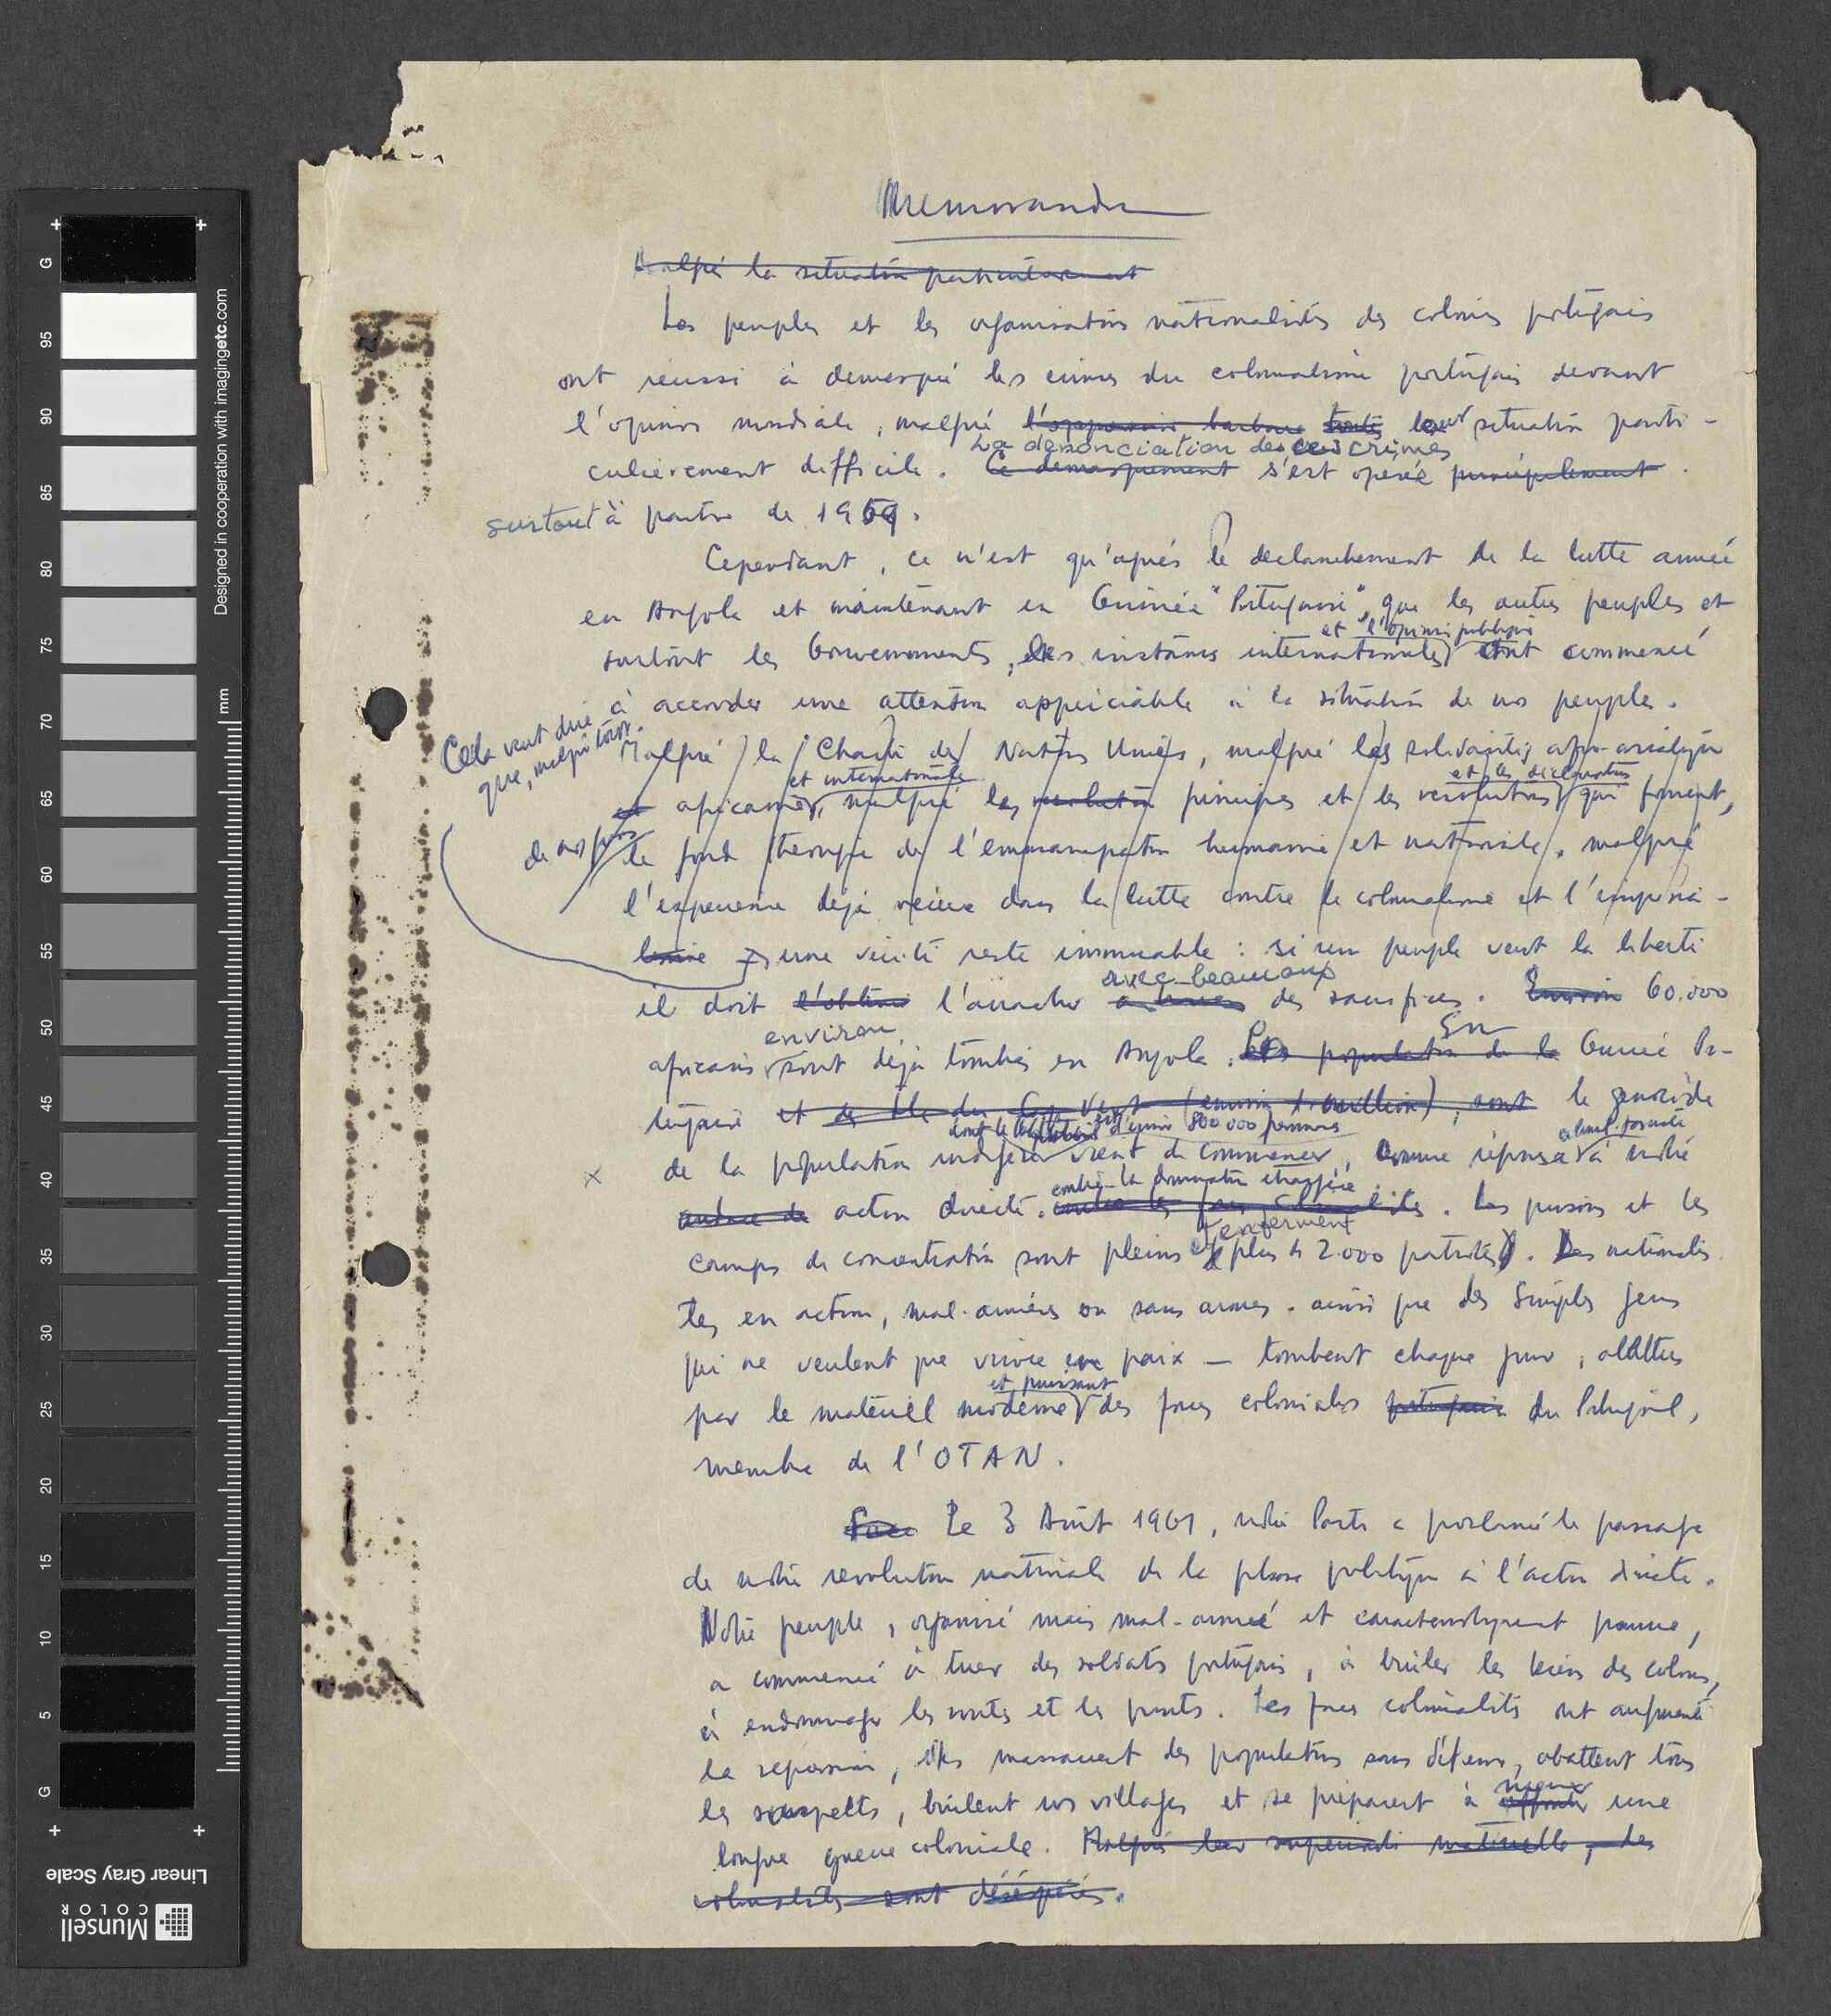 Memorandum
Malgré la situation particulièrement
Les peuples et les organisations nationalistes des colonies portugaises
ont reussi à demasqué les crimes du colonialisme portugais devant
l'opinion mondiale, malgré l'oppression barbare toutes leur situation parti-
La dénonciation de ces crimes
culièrement difficile. Ce demasquement s'est operée principalement.
surtout à partir de 1959.
Cependant, ce n'est qu'après le declanchement de la lutte armée
en Angola et maintenant en Guinée "Portugaise", que les autres peuples et
et l'opinion publique
surtout les Gouvernements, les instances internationales ont commencé
à accorder une attention appréciable à la situation de nos peuples.
Cela veut dire
que, malgré tous.
Malgré la Charte des Nations Unies, malgré les solidarités afro-asiatique
et internationale
et les déclarations
et africaines, malgré les revolution principes et les resolutions qui forment,
de nos jours
le fond de l'emancipation humaine et nationale, malgré
l'experience déjà vécue dans la lutte contre le colonialisme et l'impéria-
lisme une vérité reste immuable : si un peuple veut la liberté
avec beaucoup
il doit l'obtenir l'arracher des sacrifices. Environ 60.000
environ
En
africains sont déjà tombés en Angola. Les population de la Guinée Por-
tugaise et des Iles du Cap Vert (environ 1 million), sont le genocide
dont est d'environ 800 000 personnes
de la population indigène vient de commencer, comme réponse à notre
contre la domination étrangère
action directe. contre les forces colonialistes. Les prisons et les
renferment
camps de concentration sont pleins et plus de 2.000 patriotes. Des nationalis
tes en action, mal-armées ou sans armes - ainsi que des simples gens
qui ne veulent que vivre en paix — tombent chaque jour, abattus
et puissant
par le matériel moderne des forces coloniales portugaises du Portugal,
membre de l'OTAN.
Face Le 3 Août 1961, notre Parti a proclamé le passage
de notre revolution nationale de la phase politique à l'action directe.
Notre peuple, organisé mais mal-armé et pauvre,
a commencé à tuer des soldats portugais, à brûler les biens des colons,
à endommager les routes et les ponts. Les forces colonialistes ont augmenté
la repression, elles massacrent des populations sans défense, abattent tous
mener
les suspects, brulent nos villages et se préparent à affronter une
longue guerre coloniale. Malgré leur superiorité matérielle, les
colonialistes sont désespérés.
Designed in cooperation with imagingetc.com
mm
G
95
90
85
80
75
70
65
60
55
50
45
40
35
30
25
20
15
10
5
G
Linear Gray Scale
Munsell
COLOR